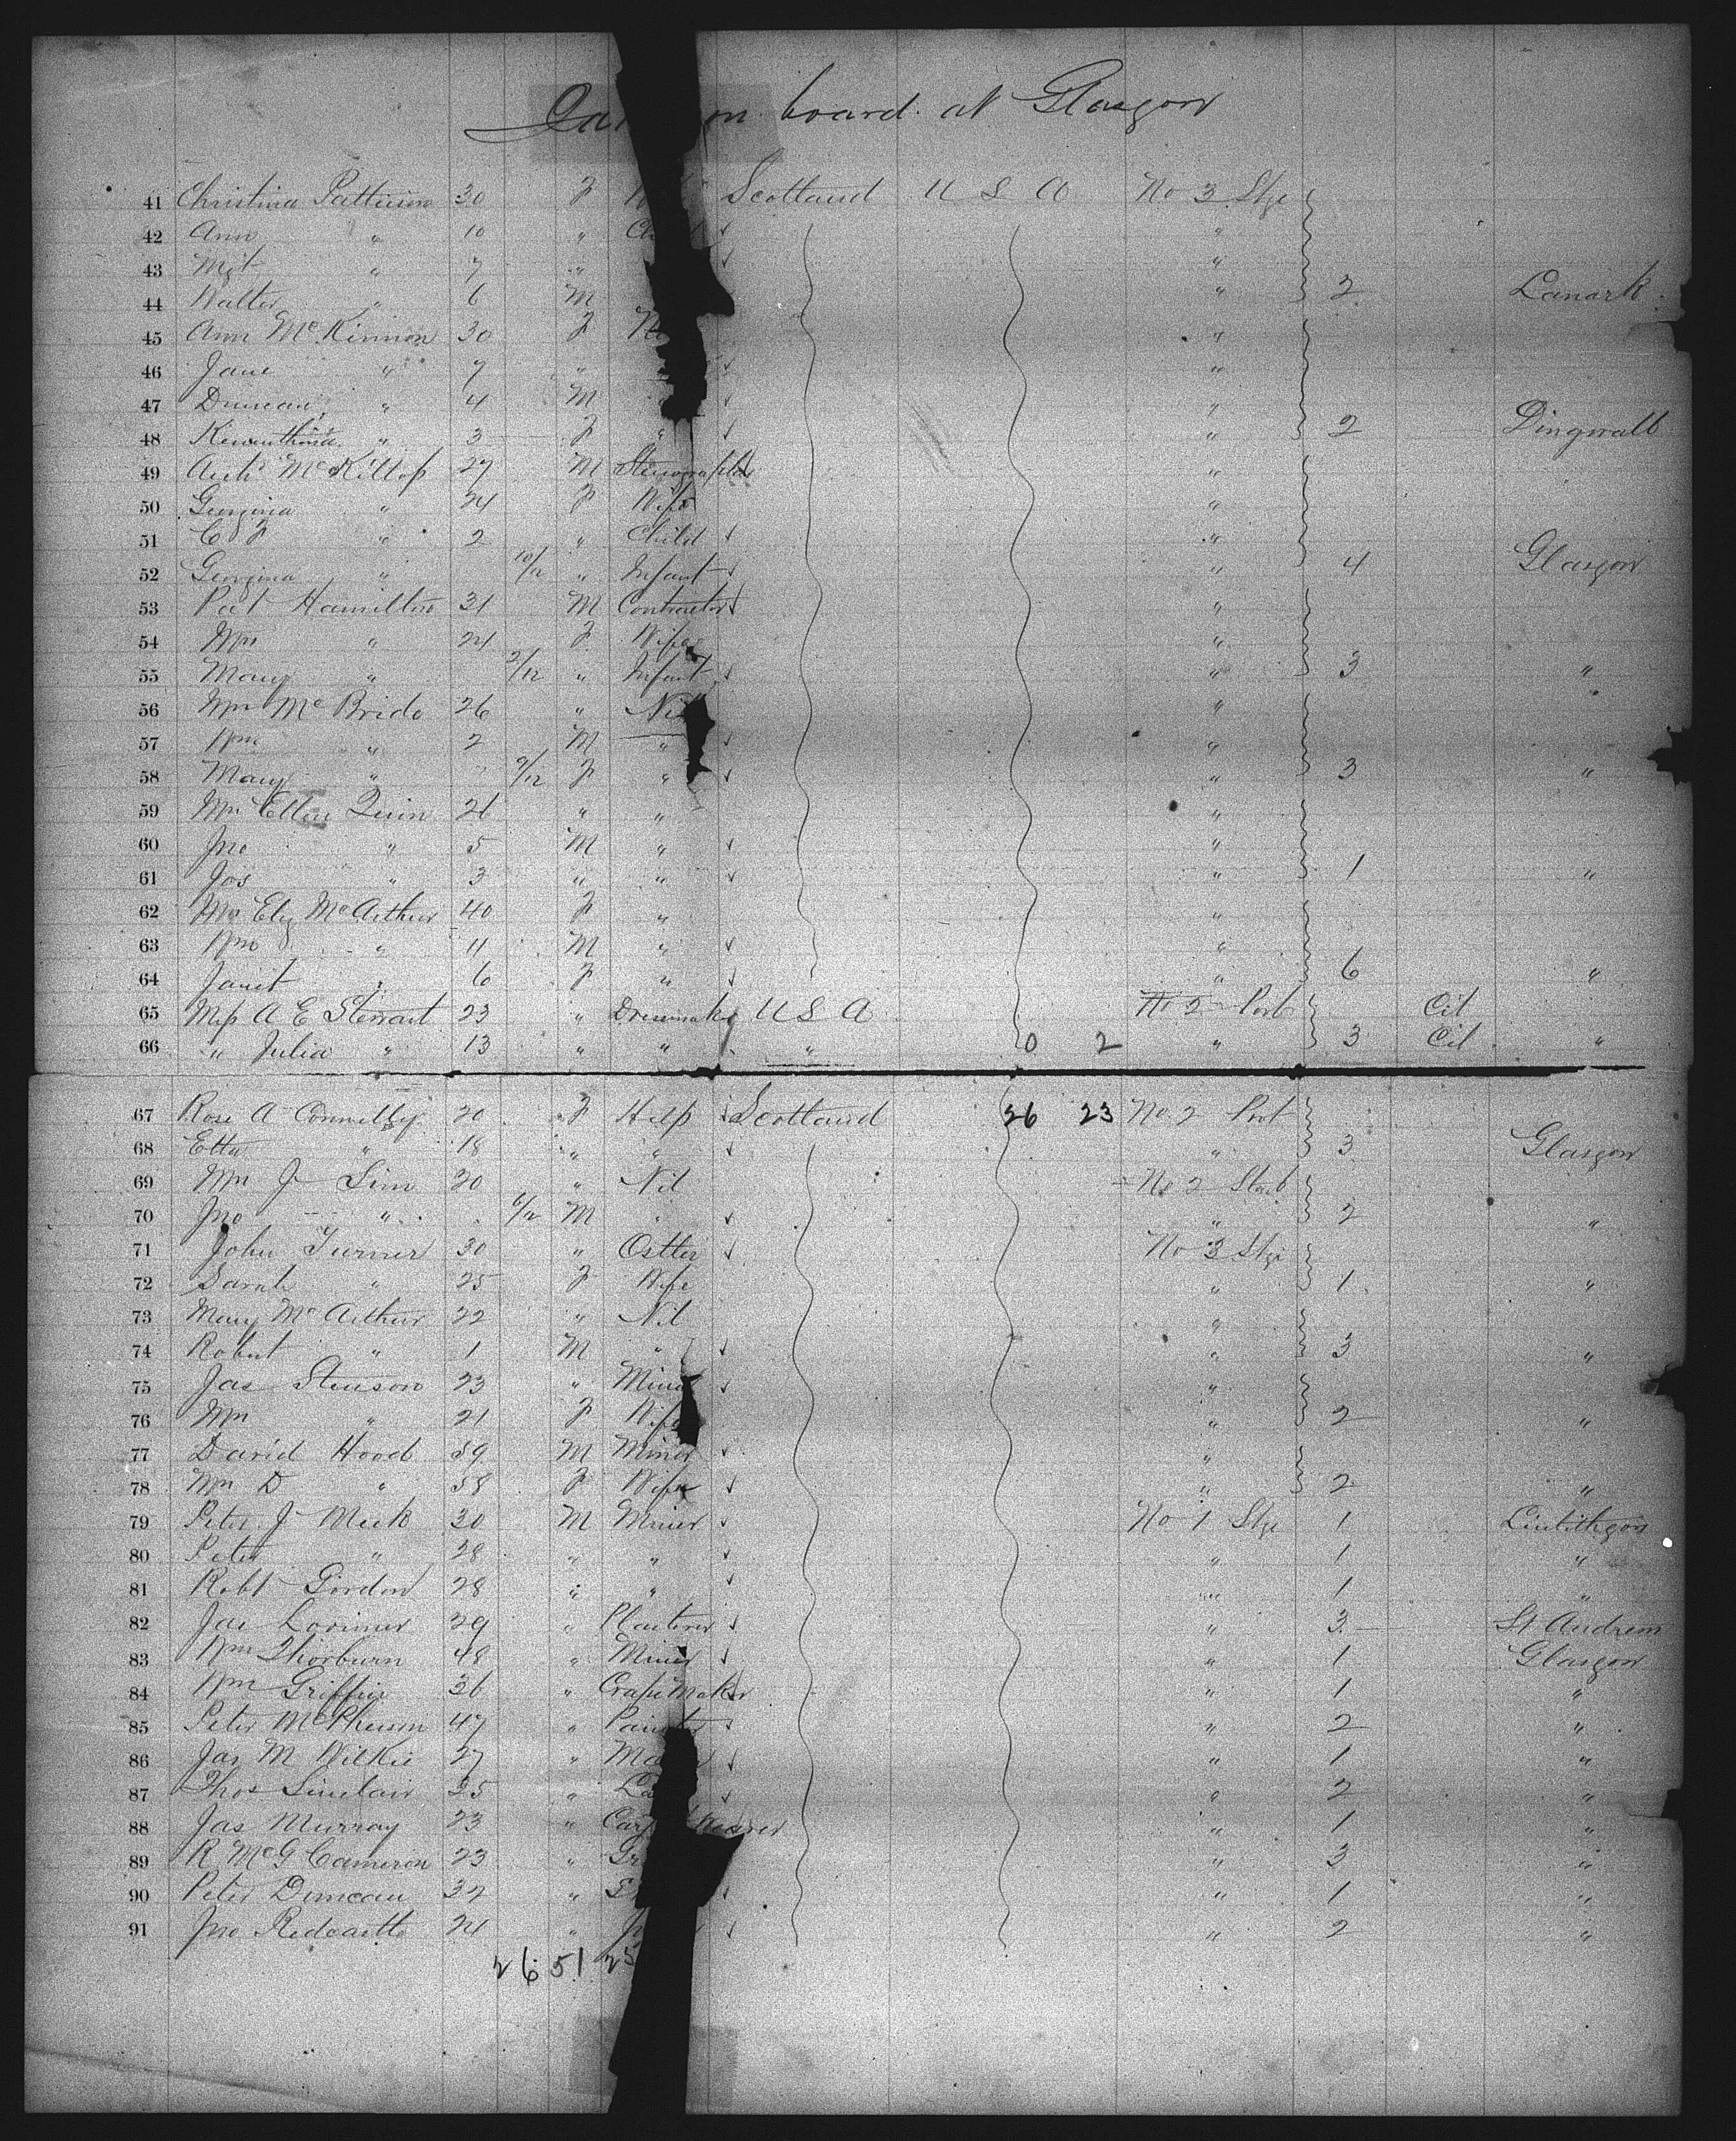 on board at Glasgow
41 Christina Pattison 30 F Scotland U S A No 3 Stge
42 Ann " 10 " "
43 Mgt " 7 " "
44 Walter " 6 M " 2 Lanark
45 Ann McKinnon 30 F "
46 Jane " 7 " "
47 Duncan " 4 M "
48 " 3 F " " 2 Dingwall
49 Arch McKillop 27 M Stenographer "
50 Georgina " 24 F Wife "
51 C F " 2 " Child "
52 Georgina " 10/12 " Infant " 4 Glasgow
53 Pat Hamilton 31 M Contractor "
54 Mrs " 24 F Wife "
55 Mary " 2/12 " Infant " 3 "
56 Mrs McBride 26 " Nil "
57 Wm " 2 M " "
58 Mary " 9/12 F " " 3 "
59 Mrs Ellen Quin 26 " " "
60 Jno " 5 M " "
61 Jos " 3 " " " 1 "
62 Mrs Eliz McArthur 40 F " "
63 Wm " 11 M " "
64 Janet " 6 F " " 6 "
65 Miss A E Stewart 23 " Dressmaker U S A No 2 Port Cit
66 " Julia " 13 " " " 0 2 " 3 Cit "
67 Rose A Connelly 20 F Help Scotland 26 23 No 2 Port
68 Etta " 18 " " " 3 Glasgow
69 Mrs J Sim 20 " Nil No 2 Starb
70 Jno " 6/12 M " " 2 "
71 John Turner 30 " Ostler No 3 Stge
72 Sarah " 25 F Wife " 1 "
73 Mary McArthur 22 " Nil "
74 Robert " 1 M " " 3 "
75 Jas Stenson 23 " Miner "
76 Mrs " 21 F Wife " 2 "
77 David Hood 59 M Miner "
78 Mrs D " 58 F Wife " 2 "
79 Peter J Meek 30 M Miner No 1 Stge 1 Linlithgow
80 Peter " 28 " " " 1 "
81 Robt Gordon 28 " " " 1 "
82 Jas Lorimer 29 " Plasterer " 3 St Andrews
83 Wm Thorburn 48 " Miner " 1 Glasgow
84 Wm Griffin 36 " Crape Maker " 1 "
85 Peter McPherson 47 " Painter " 2 "
86 Jas M Wilkie 27 " " 1 "
87 Thos Sinclair 35 " " 2 "
88 Jas Murray 23 " " 1 "
89 R McG Cameron 23 " " 3 "
90 Peter Duncan 37 " " 1 "
91 Jno 24 " " 2 "
26 51 25